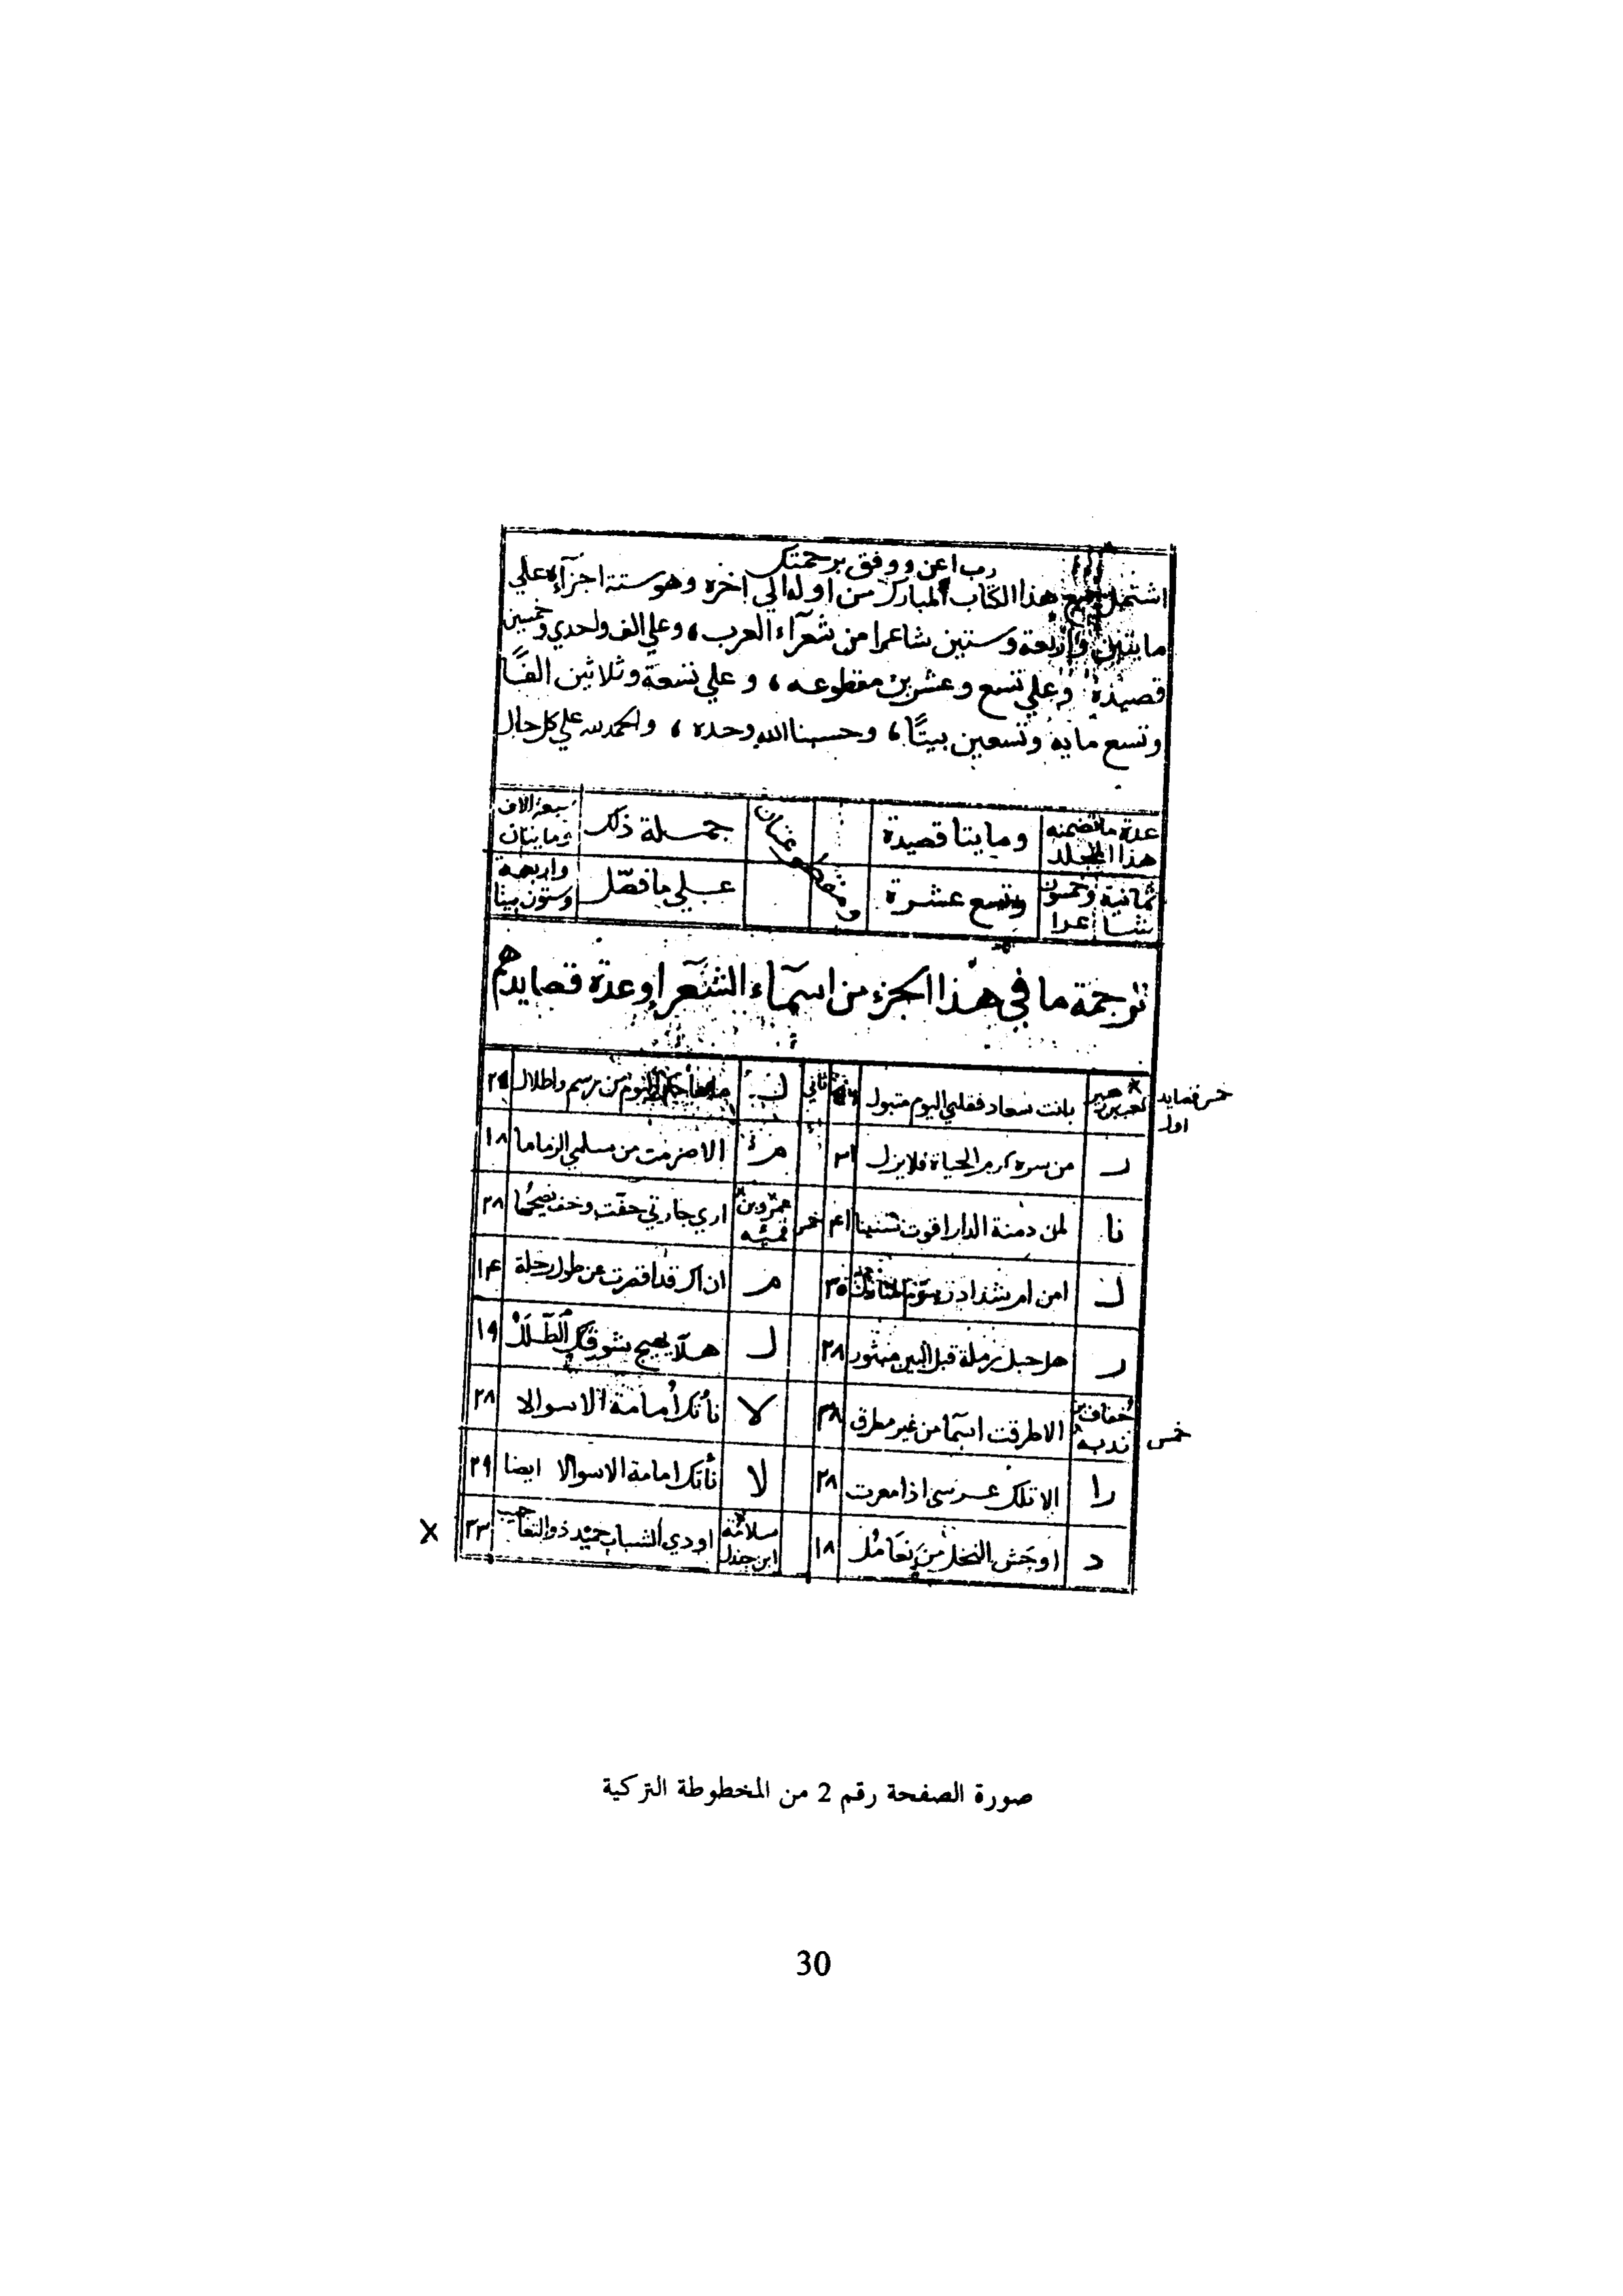 رب اعن ووفق برحمتك
اشتمل جميع هذا الكتاب المبارك من اوله الي اخره وهو ستة اجزآء علي
مايتين واربعة وستين شاعرا من شعرآء العرب، وعلي الف واحدي وخمسين
قصيدة وعلي تسع وعشرين مقطوعه، وعلي تسعة وثلاثين الفًا
وتسع مايه وتسعين بيتًا، وحسبنا الله وحده، والحمد لله علي كل حال
عدة ما تضمنه هذا المجلد
ومايتا قصيدة
جملة ذلك
سبعة الاف ومايتان
ثمانية وخمسون شاعرا
وتسع عشرة
ومقطوعتان
علي ما فصّل
واربعة وستون بيتا
ترجمة ما في هذا الجزء من اسمآء الشعرا وعدة قصايدهم
خمس قصايد اول
كعب بن زهير
بانت سعاد فقلبي اليوم متبول
ثاني
ل
من رسم واطلال
ر
من سره كرم الحياة فلا يزل
٣١
م
الا صرمت من سلمي الزماما
١٨
نا
لمن دمنة الدار اقوت سنينا
٤١
خمس
عمرو بن قميئه
اري جارتي خفت وخف نصيحُها
٢٨
ل
امن ام شداد رسوم المنازل
٣٥
م
ان اك قد اقصرت عن طول رحلة
١٤
ر
هل حبل رملة قبل البين مبتور
٢٨
ل
هلّا يهيج شوقك الطَّلَلْ
١٩
خمس
خُفاف بن ندبه
الا طرقت اسمآ من غير مطرق
٣٨
لا
نأتك أمامة الا سوالا
٢٨
را
الا تلك عرسي اذا معرت
٢٨
لا
نأتك امامة الا سوالا ايضا
٢٩
د
اوحش النخل من نعامُ
١٨
سلامة ابن جندل
اودي الشباب حميد ذو التعاجيب
٣٣
X
صورة الصفحة رقم 2 من المخطوطة التركية
30